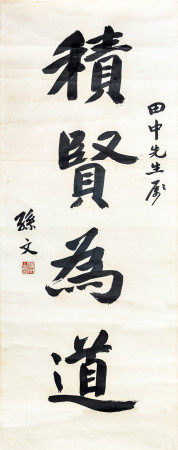 田中先生屬
積賢為道
孫文